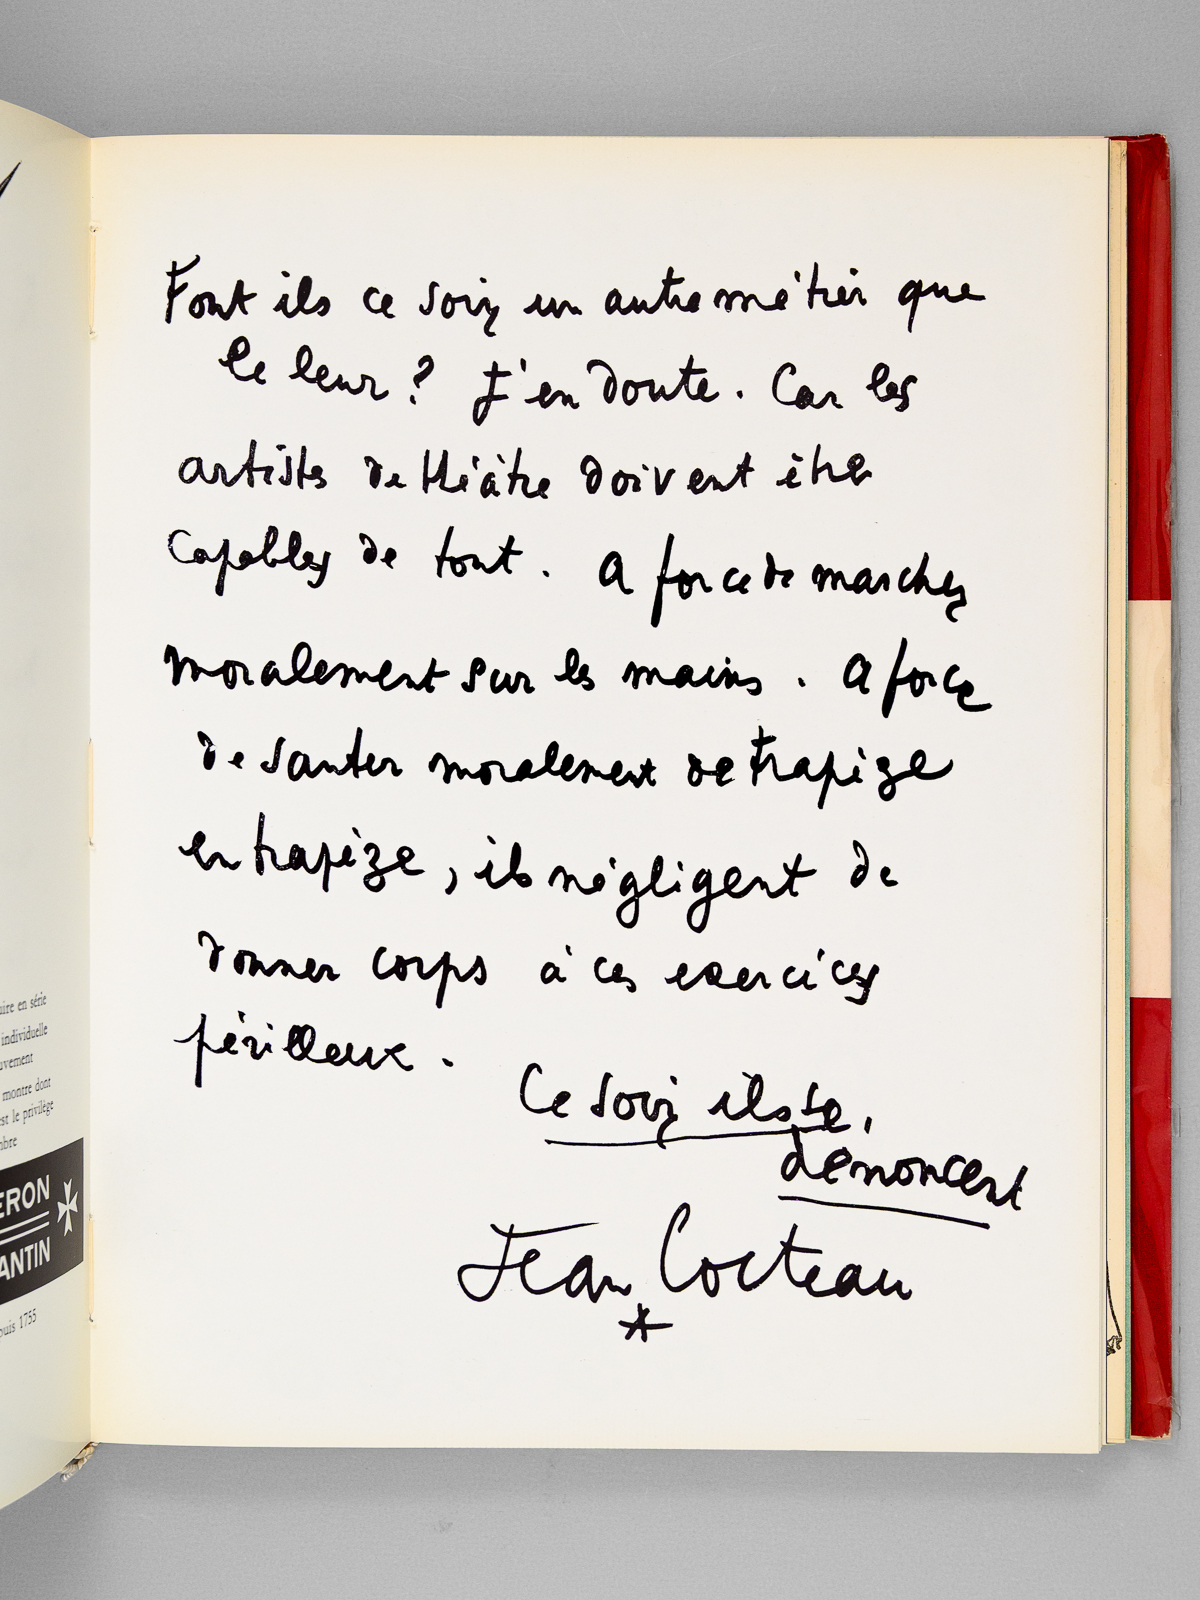 uire en série
individuelle
uvement
montre dont
est le privilège
mbre
ERON
ANTIN
puis 1755
Font ils ce soir un autre métier que
le leur ? J'en doute. Car les
artistes de théâtre doivent être
capables de tout. A force de marcher
moralement sur les mains. A force
de sauter moralement de trapèze
en trapèze, ils négligent de
donner corps à ces exercices
périlleux.
Ce soir ils se
dénoncent
Jean Cocteau
*